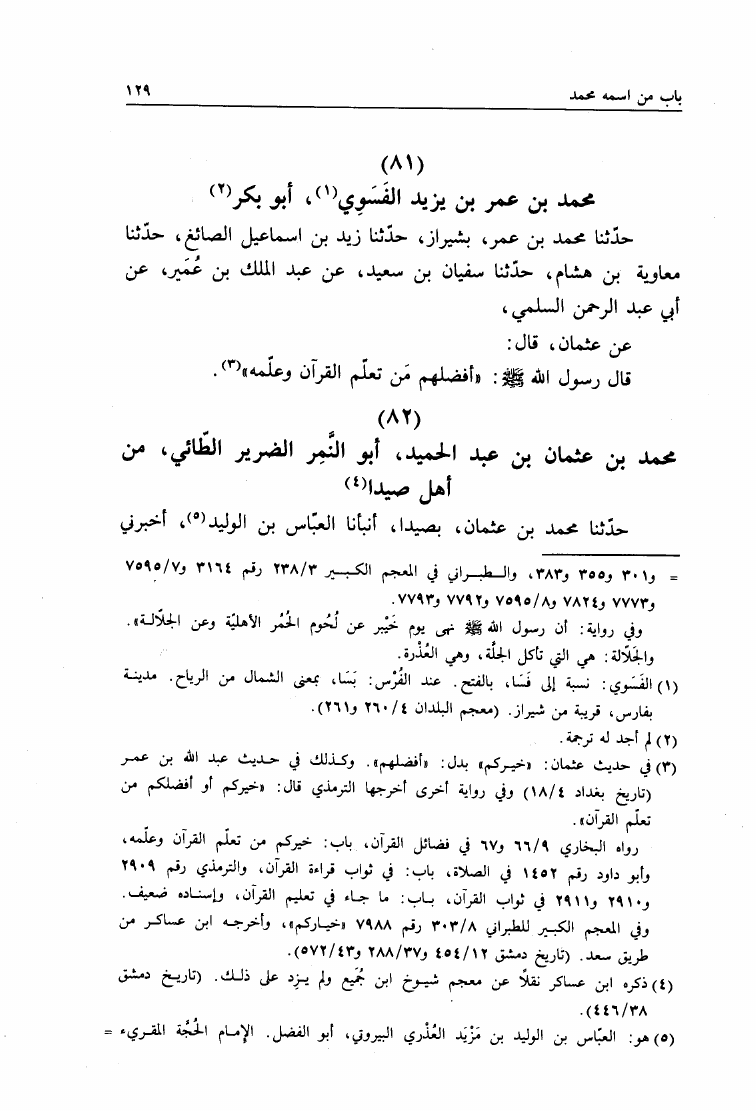 باب من اسمه محمد ١٢٩
(٨١)
محمد بن عمر بن يزيد الفَسَوِي(١)، أبو بكر(٢)
حدّثنا محمد بن عمر، بشيراز، حدّثنا زيد بن اسماعيل الصائغ، حدّثنا
معاوية بن هشام، حدّثنا سفيان بن سعيد، عن عبد الملك بن عُمَير، عن
أبي عبد الرحمن السلمي،
عن عثمان، قال:
قال رسول الله ﷺ: «أفضلهم مَن تعلّم القرآن وعلّمه»(٣).
(٨٢)
محمد بن عثمان بن عبد الحميد، أبو النَّمِر الضرير الطّائي، من
أهل صيدا(٤)
حدّثنا محمد بن عثمان، بصيدا، أنبأنا العبّاس بن الوليد(٥)، أخبرني
= و٣٠١ و٣٥٥ و٣٨٣، والـطبـراني في المعجم الكبـير ٢٣٨/٣ رقم ٣١٦٤ و٧٥٩٥/٧
و٧٧٧٣ و٧٨٢٤ و٧٥٩٥/٨ و٧٧٩٢ و٧٧٩٣.
وفي رواية: أن رسول الله ﷺ نهى يوم خَيْبر عن لُحُوم الحُمُر الأهليّة وعن الجلّالـة».
والجَلّالة: هي التي تأكل الجِلَّة، وهي العُذْرة.
(١) الفَسَوي: نسبة إلى فَسَا، بالفتح. عند الفُرْس: بَسَا، بمعنى الشمال من الرياح. مدينـة
بفارس، قريبة من شيراز. (معجم البلدان ٢٦٠/٤ و٢٦١).
(٢) لم أجد له ترجمة.
(٣) في حديث عثمان: «خيـركم» بدل: «أفضلهم». وكـذلك في حـديث عبد الله بن عمـر
(تاريخ بغداد ١٨/٤) وفي رواية أخرى أخرجها الترمذي قال: «خيركم أو أفضلكم من
تعلّم القرآن».
رواه البخاري ٦٦/٩ و٦٧ في فضائل القرآن، باب: خيركم من تعلّم القرآن وعلّمه،
وأبو داود رقم ١٤٥٢ في الصلاة، باب: في ثواب قراءة القرآن، والترمذي رقم ٢٩٠٩
و٢٩١٠ و٢٩١١ في ثواب القرآن، بـاب: ما جـاء في تعليم القرآن، وإسنـاده ضعيف.
وفي المعجم الكبـير للطبراني ٣٠٣/٨ رقم ٧٩٨٨ «خيـاركم»، وأخرجـه ابن عساكـر من
طريق سعد. (تاريخ دمشق ٤٥٤/١٢ و٢٨٨/٣٧ و٥٧٢/٤٣).
(٤) ذكره ابن عساكر نقلًا عن معجم شيـوخ ابن جُمَيع ولم يـزد على ذلـك. (تاريـخ دمشق
٤٤٦/٣٨).
(٥) هو: العبّاس بن الوليد بن مَزْيَد العُذْري البيروتي، أبو الفضل. الإمـام الحُجّة المقـريء =